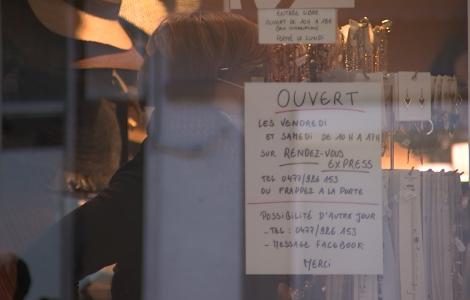 ENTRÉE LIBRE
OUVERT DE 10H A 18H
FERMÉ LE LUNDI
OUVERT
LES VENDREDI
ET SAMEDI DE 10H A 17H
SUR RENDEZ-VOUS
EXPRESS
TEL 0477/986 153
OU FRAPPEZ A LA PORTE
POSSIBILITÉ D'AUTRE JOUR
- TEL : 0477/986 153
- MESSAGE FACEBOOK
MERCI